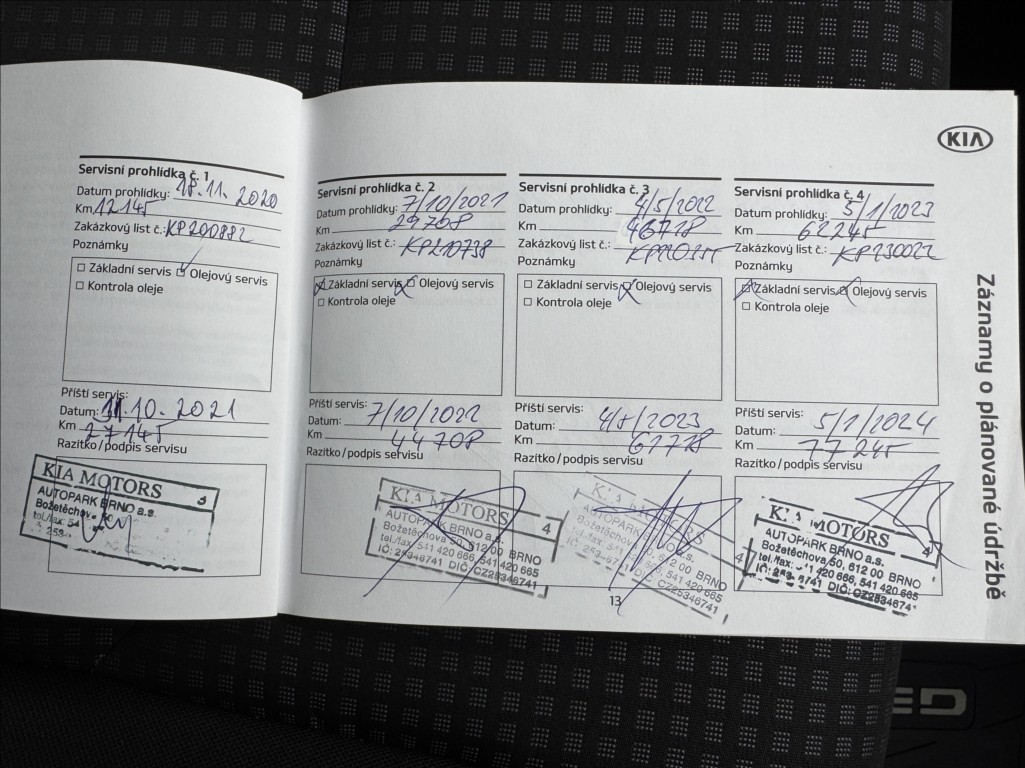 KIA
Záznamy o plánované údržbě
Servisní prohlídka č. 1
Datum prohlídky: 18.11. 2020
Km 12145
Zakázkový list č.: KP200882
Poznámky
Základní servis Olejový servis
Kontrola oleje
Příští servis:
Datum: 11.10. 2021
Km 27145
Razítko/podpis servisu
KIA MOTORS
AUTOPARK BRNO a.s.
tel./fax: 54
Servisní prohlídka č. 2
Datum prohlídky: 7/10/2021
Km 29708
Zakázkový list č.: KP210738
Poznámky
Základní servis Olejový servis
Kontrola oleje
Příští servis:
Datum: 7/10/2022
Km 44708
Razítko/podpis servisu
KIA MOTORS 4
AUTOPARK BRNO a.s.
Božetěchova 50, 612 00 BRNO
tel./fax: 541 420 666, 541 420 665
IČ: 25346741 DIČ: CZ25346741
Servisní prohlídka č. 3
Datum prohlídky: 4/5/2022
Km 46778
Zakázkový list č.:
Poznámky
Základní servis Olejový servis
Kontrola oleje
Příští servis:
Datum: 4/5/2023
Km 61778
Razítko/podpis servisu
KIA MOTORS 4
AUTOPARK BRNO a.s.
Božetěchova 50, 612 00 BRNO
tel./fax: 541 420 666, 541 420 665
IČ: 25346741 DIČ: CZ25346741
Servisní prohlídka č. 4
Datum prohlídky: 5/1/2023
Km 62245
Zakázkový list č.: KP230022
Poznámky
Základní servis Olejový servis
Kontrola oleje
Příští servis:
Datum: 5/1/2024
Km 77245
Razítko/podpis servisu
KIA MOTORS 4
AUTOPARK BRNO a.s.
Božetěchova 50, 612 00 BRNO
tel./fax: 541 420 666, 541 420 665
IČ: 25346741 DIČ: CZ2534674
13